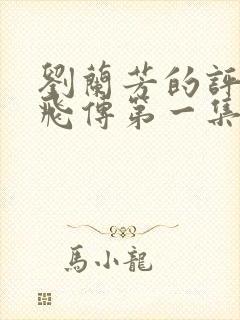 劉蘭芳的評
飛傳第一集
馬小龍